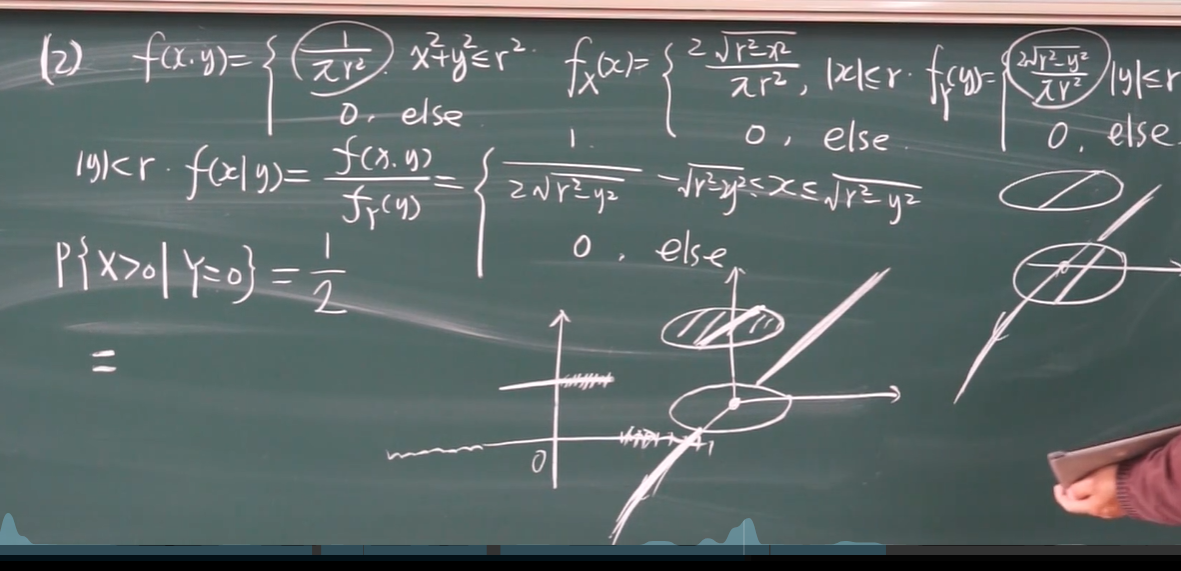 (2) f(x.y)= { 1/πr². x²+y²≤r². 0. else f_X(x)= { 2√r²-x²/πr², |x|≤r. 0, else. f_Y(y)= { 2√r²-y²/πr² |y|≤r 0, else
|y|<r. f(x|y)= f(x.y)/f_Y(y) = { 1/2√r²-y² -√r²-y²≤x≤√r²-y² 0, else
P{X>0|Y=0} = 1/2
=
0